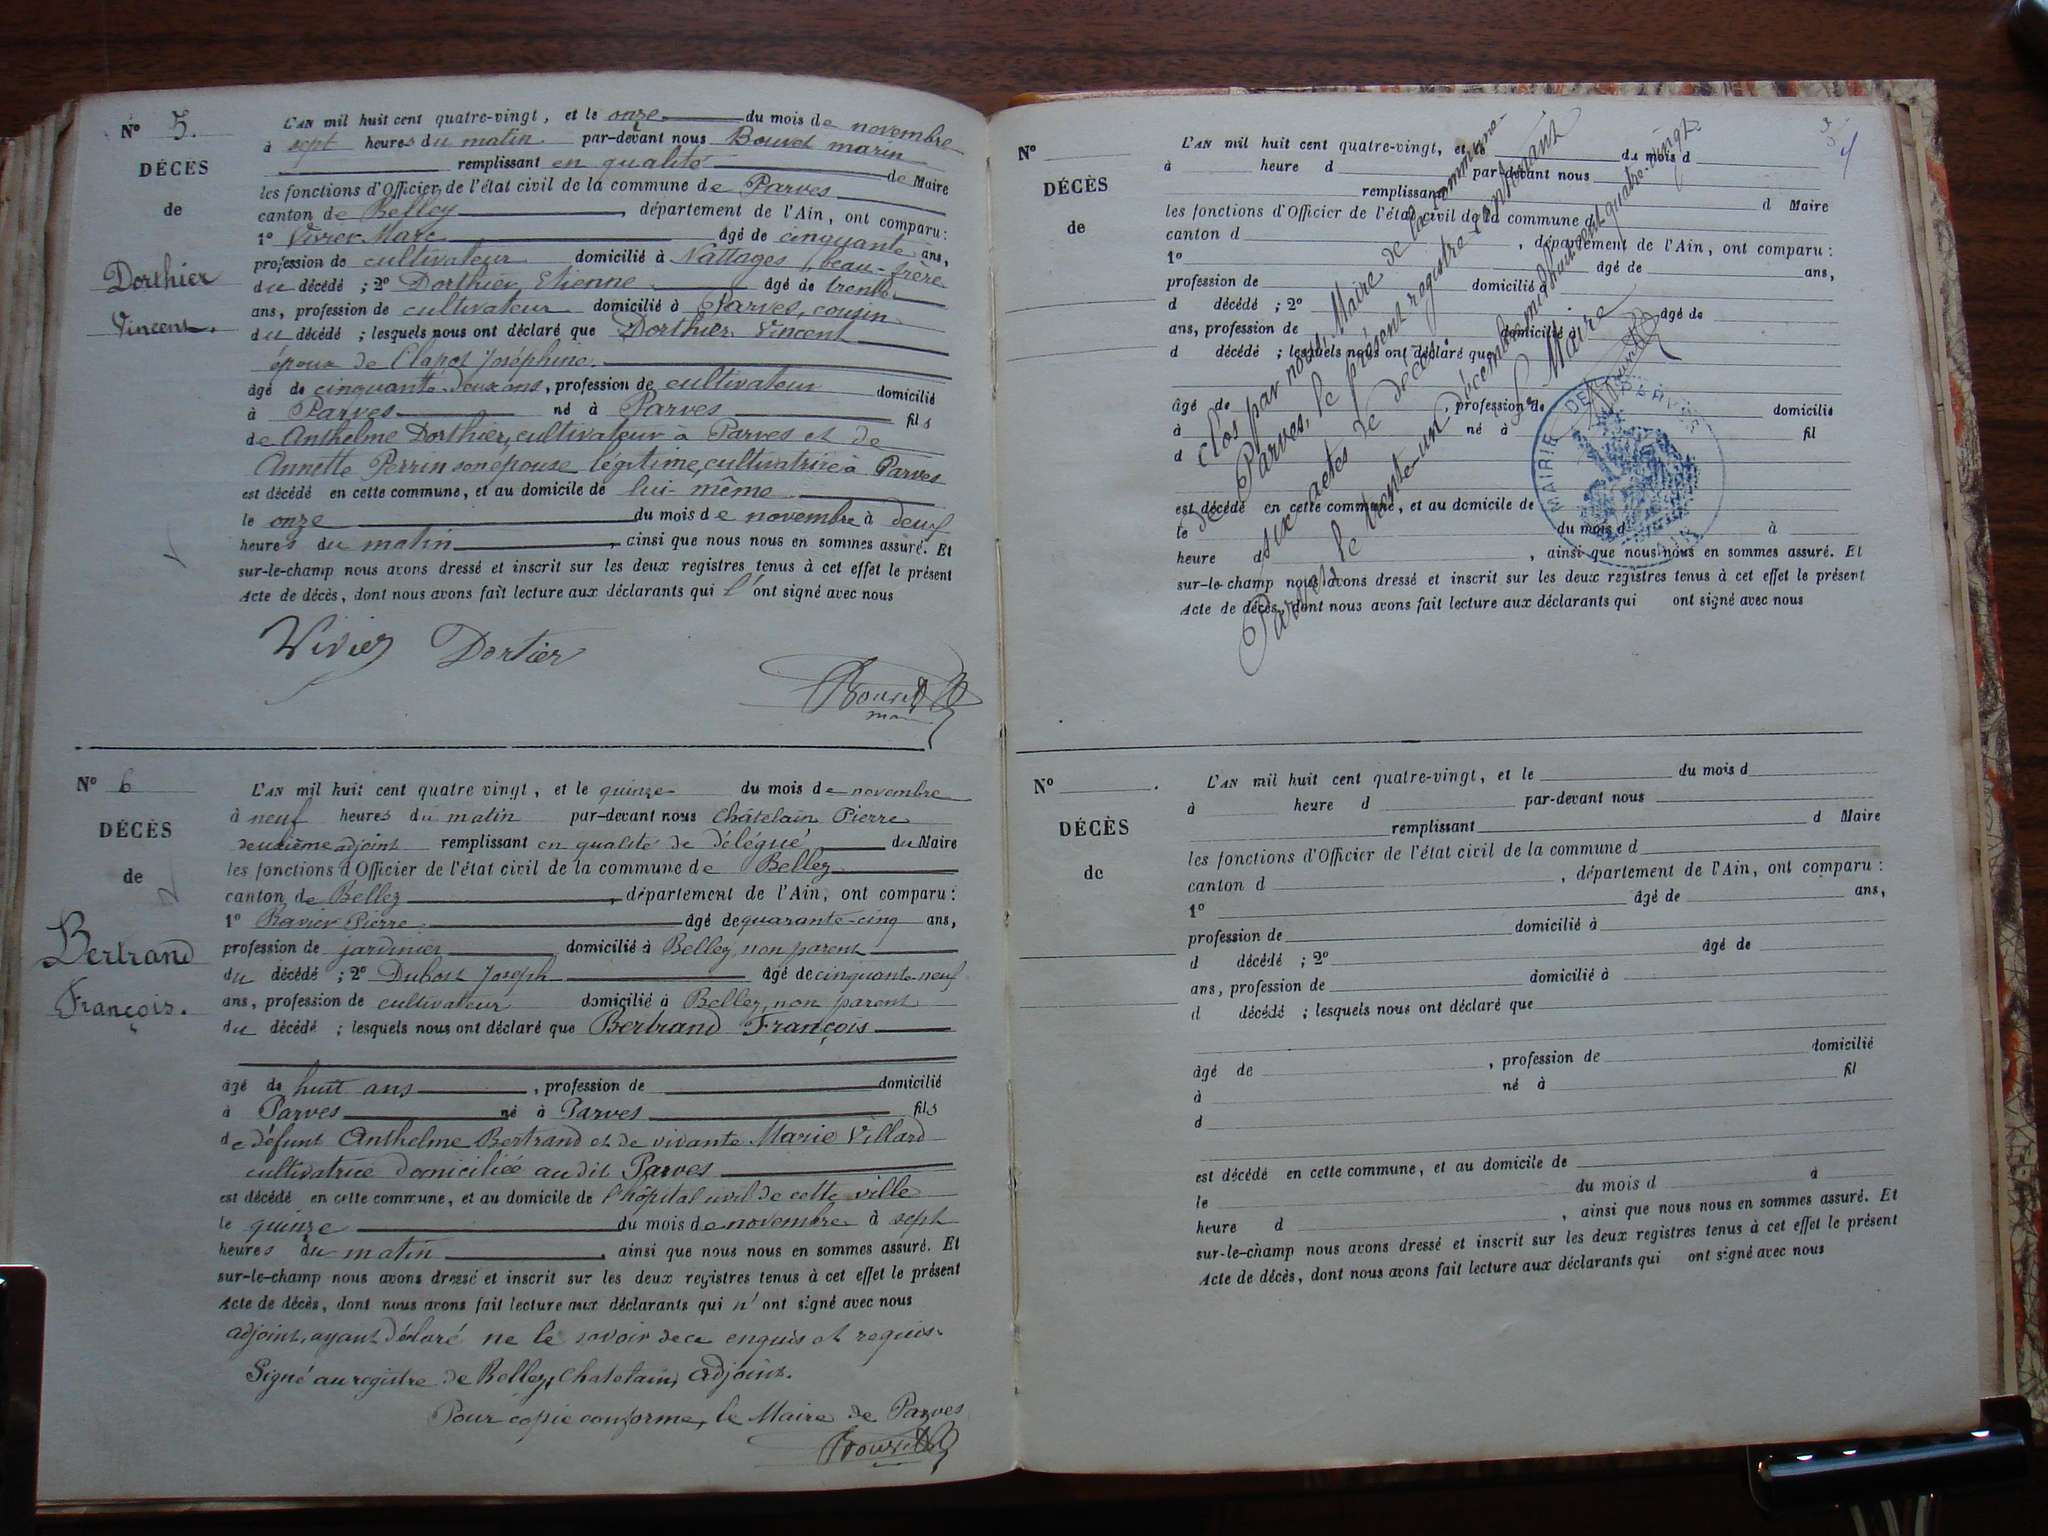 N° 5.
DÉCÈS
de
Dorthier
Vincent.
L'AN mil huit cent quatre-vingt, et le onze du mois de novembre
à sept heures du matin par-devant nous Bouvet marin
remplissant en qualité de Maire
les fonctions d'Officier de l'état civil de la commune de Parves
canton de Belley, département de l'Ain, ont comparu :
1° Vivier Marc âgé de cinquante ans,
profession de cultivateur domicilié à Nattages, beau-frère
du décédé ; 2° Dorthier Etienne âgé de trente
ans, profession de cultivateur domicilié à Parves, cousin
du décédé ; lesquels nous ont déclaré que Dorthier Vincent
époux de Clapet Joséphine
âgé de cinquante-deux ans, profession de cultivateur domicilié
à Parves né à Parves fils
de Anthelme Dorthier, cultivateur à Parves et de
Annette Perrin son épouse légitime, cultivatrice à Parves
est décédé en cette commune, et au domicile de lui-même
le onze du mois de novembre à deux
heures du matin, ainsi que nous nous en sommes assuré. Et
sur-le-champ nous avons dressé et inscrit sur les deux registres tenus à cet effet le présent
Acte de décès, dont nous avons fait lecture aux déclarants qui l'ont signé avec nous
Vivier Dortier
Bouvet
N° 6
DÉCÈS
de
Bertrand
François.
L'AN mil huit cent quatre vingt, et le quinze du mois de novembre
à neuf heures du matin par-devant nous Châtelain Pierre
deuxième adjoint remplissant en qualité de délégué du Maire
les fonctions d'Officier de l'état civil de la commune de Belley
canton de Belley, département de l'Ain, ont comparu :
1° Ravier Pierre âgé de quarante-cinq ans,
profession de jardinier domicilié à Belley, non parent
du décédé ; 2° Dubost Joseph âgé de cinquante neuf
ans, profession de cultivateur domicilié à Belley, non parent
du décédé ; lesquels nous ont déclaré que Bertrand François
âgé de huit ans, profession de domicilié
à Parves né à Parves fils
de défunt Anthelme Bertrand et de vivante Marie Villard
cultivatrice domiciliée audit Parves
est décédé en cette commune, et au domicile de l'hôpital civil de cette ville
le quinze du mois de novembre à sept
heures du matin, ainsi que nous nous en sommes assuré. Et
sur-le-champ nous avons dressé et inscrit sur les deux registres tenus à cet effet le présent
Acte de décès, dont nous avons fait lecture aux déclarants qui n'ont signé avec nous
adjoint, ayant déclaré ne le savoir de ce enquis et requis.
Signé au registre de Belley, Chatelain, adjoint.
Pour copie conforme, le Maire de Parves
Bouvet
N°
DÉCÈS
de
L'AN mil huit cent quatre-vingt, et le du mois d
à heure d par-devant nous
remplissant d Maire
les fonctions d'Officier de l'état civil de la commune d
canton d, département de l'Ain, ont comparu :
1° âgé de ans,
profession de domicilié à
d décédé ; 2° âgé de
ans, profession de domicilié à
d décédé ; lesquels nous ont déclaré que
âgé de, profession de domicilié
à né à fil
d
est décédé en cette commune, et au domicile de
le du mois d à
heure d, ainsi que nous nous en sommes assuré. Et
sur-le-champ nous avons dressé et inscrit sur les deux registres tenus à cet effet le présent
Acte de décès, dont nous avons fait lecture aux déclarants qui ont signé avec nous
Clos par nous, Maire de la commune
de Parves, le présent registre contenant
six actes de décès.
Parves le trente-un décembre mil huit cent quatre-vingt.
Le Maire
Bouvet
MAIRIE DE PARVES
AIN
N°
DÉCÈS
de
L'AN mil huit cent quatre-vingt, et le du mois d
à heure d par-devant nous
remplissant d Maire
les fonctions d'Officier de l'état civil de la commune d
canton d, département de l'Ain, ont comparu :
1° âgé de ans,
profession de domicilié à
d décédé ; 2° âgé de
ans, profession de domicilié à
d décédé ; lesquels nous ont déclaré que
âgé de, profession de domicilié
à né à fil
d
est décédé en cette commune, et au domicile de
le du mois d à
heure d, ainsi que nous nous en sommes assuré. Et
sur-le-champ nous avons dressé et inscrit sur les deux registres tenus à cet effet le présent
Acte de décès, dont nous avons fait lecture aux déclarants qui ont signé avec nous